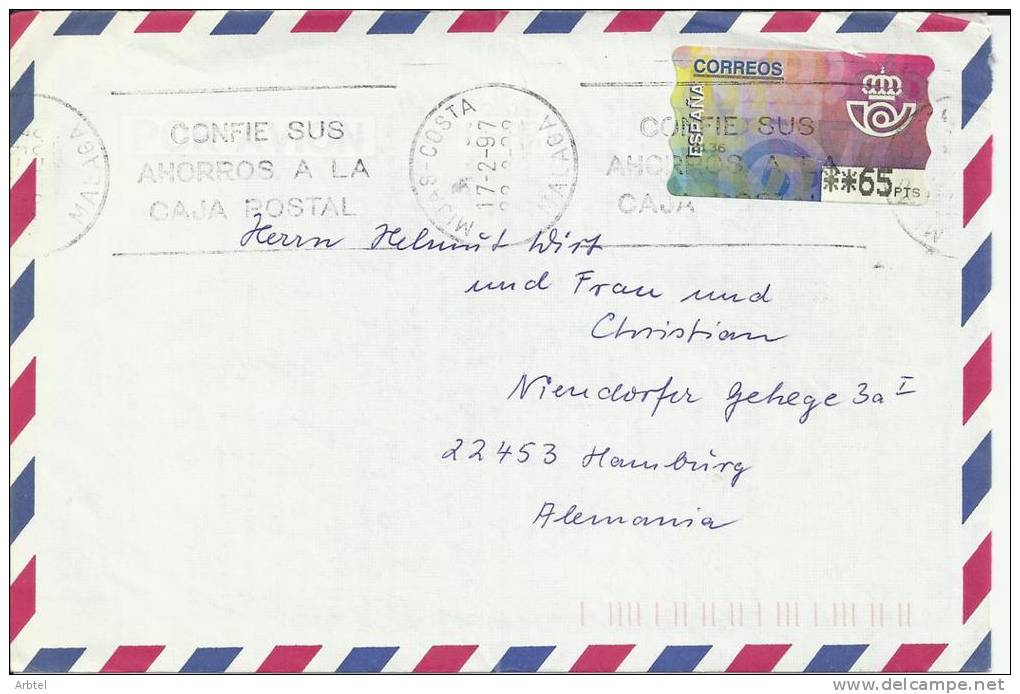 CORREOS
ESPAÑA
**65 PTS
CONFIE SUS
AHORROS A LA
CAJA POSTAL
MIJAS-COSTA
17-2-97
MALAGA
CONFIE SUS
AHORROS A LA
CAJA
MALAGA
Herrn Helmut Wirt
und Frau und
Christian
Niendorfer Gehege 3a I
22453 Hamburg
Alemania
Arbtel
delcampe.net